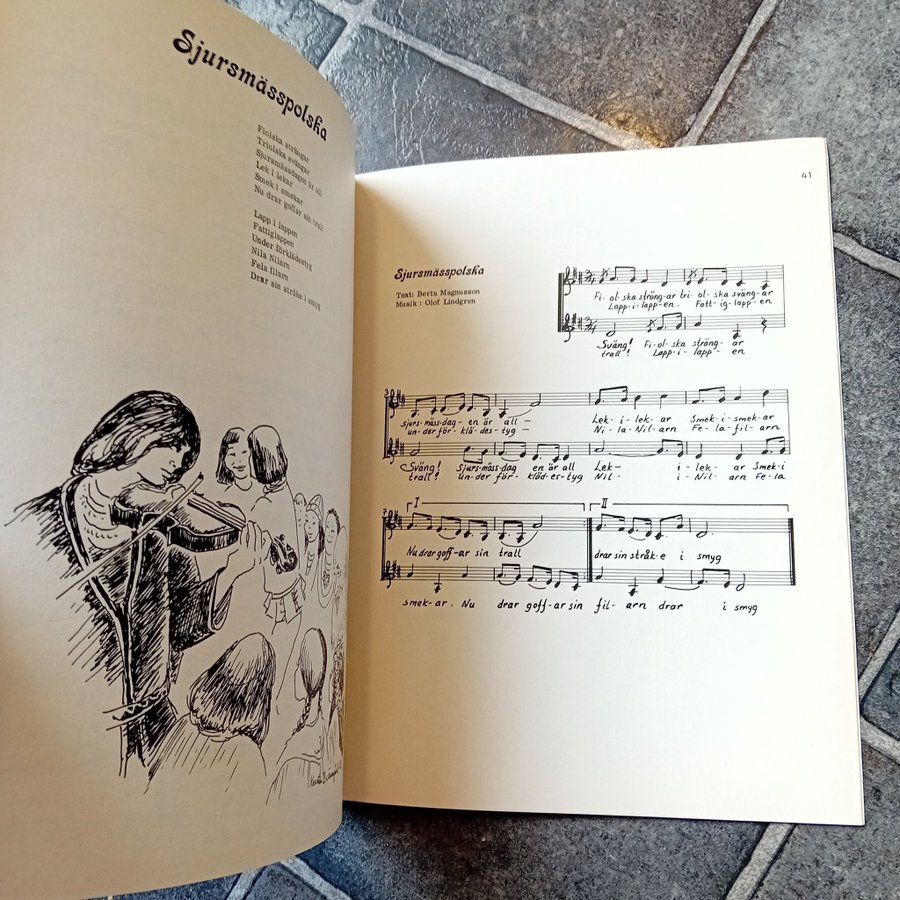 Sjursmässpolska
Fiolska strängar
Triolska svängar
Sjursmässdagen är all
Lek i lekar
Smek i smekar
Nu drar goffar sin trall
Lapp i lappen
Fattiglappen
Under förklädestyg
Nila Nilarn
Fela filarn
Drar sin stråke i smyg
41
Sjursmässpolska
Text: Berta Magnusson
Musik: Olof Lindgren
Fi-ol-ska sträng-ar tri-ol-ska sväng-är
Lapp-i-lapp-en. Fatt-ig-lapp-en
Sväng! Fi-ol-ska sträng-ar
trall! Lapp-i-lapp-en
3
sjurs-mäss-dag-en är all- Lek-i-lek-ar Smek-i-smek-ar
un-der för-kläd-es-tyg- Ni-la-Nil-arn Fe-la-fil-arn
Sväng! Sjurs-mäss-dag en är all Lek- i-lek-ar Smek-i
trall! un-der för-kläd-es-tyg Nil- i-Nil-arn Fe-la
I II
7
Nu drar goff-ar sin trall drar sin stråk-e i smyg
smek-ar. Nu drar goff-ar sin fil-arn drar i smyg